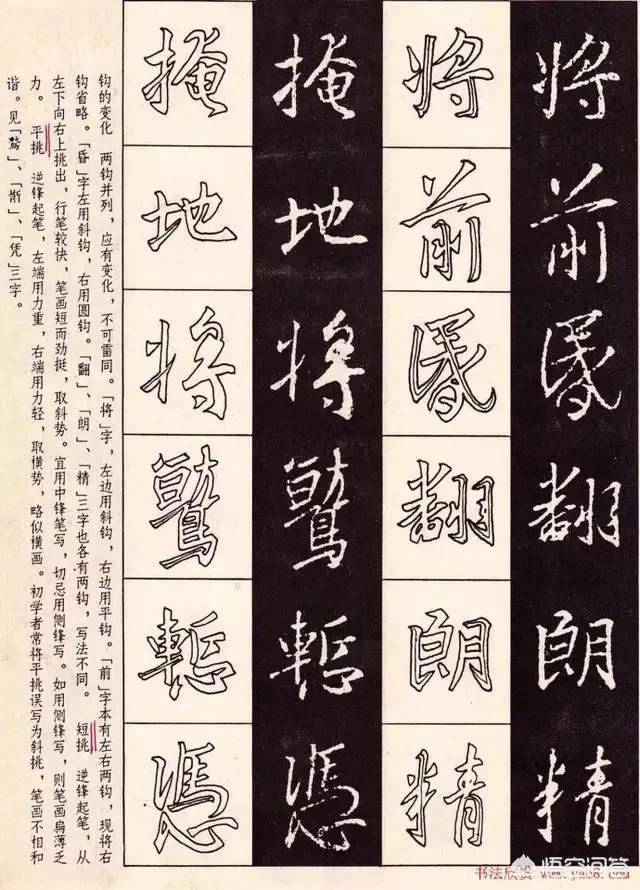 将前昏翻朗精
将前昏翻朗精
掩地将鷲慙憑
掩地将鷲慙憑
钩的变化　两钩并列，应有变化，不可雷同。「将」字，左边用斜钩，右边用平钩。「前」字本有左右两钩，现将右
钩省略。「昏」字左用斜钩，右用圆钩。「翻」、「朗」、「精」三字也各有两钩，写法不同。　短挑　逆锋起笔，从
左下向右上挑出，行笔较快，笔画短而劲挺，取斜势。宜用中锋笔写，切忌用侧锋写。如用侧锋写，则笔画扁薄乏
力。　平挑　逆锋起笔，左端用力重，右端用力轻，取横势，略似横画。初学者常将平挑误写为斜挑，笔画不相和
谐。见「鹫」、「惭」、「凭」三字。
书法欣赏 www.yac8.com
悟空问答